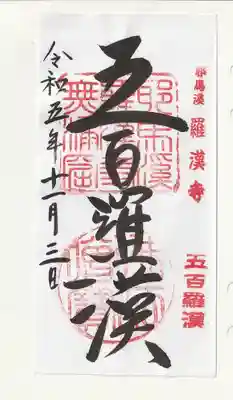 耶馬渓
羅漢寺
五百羅漢
五百羅漢
令和五年十一月三日